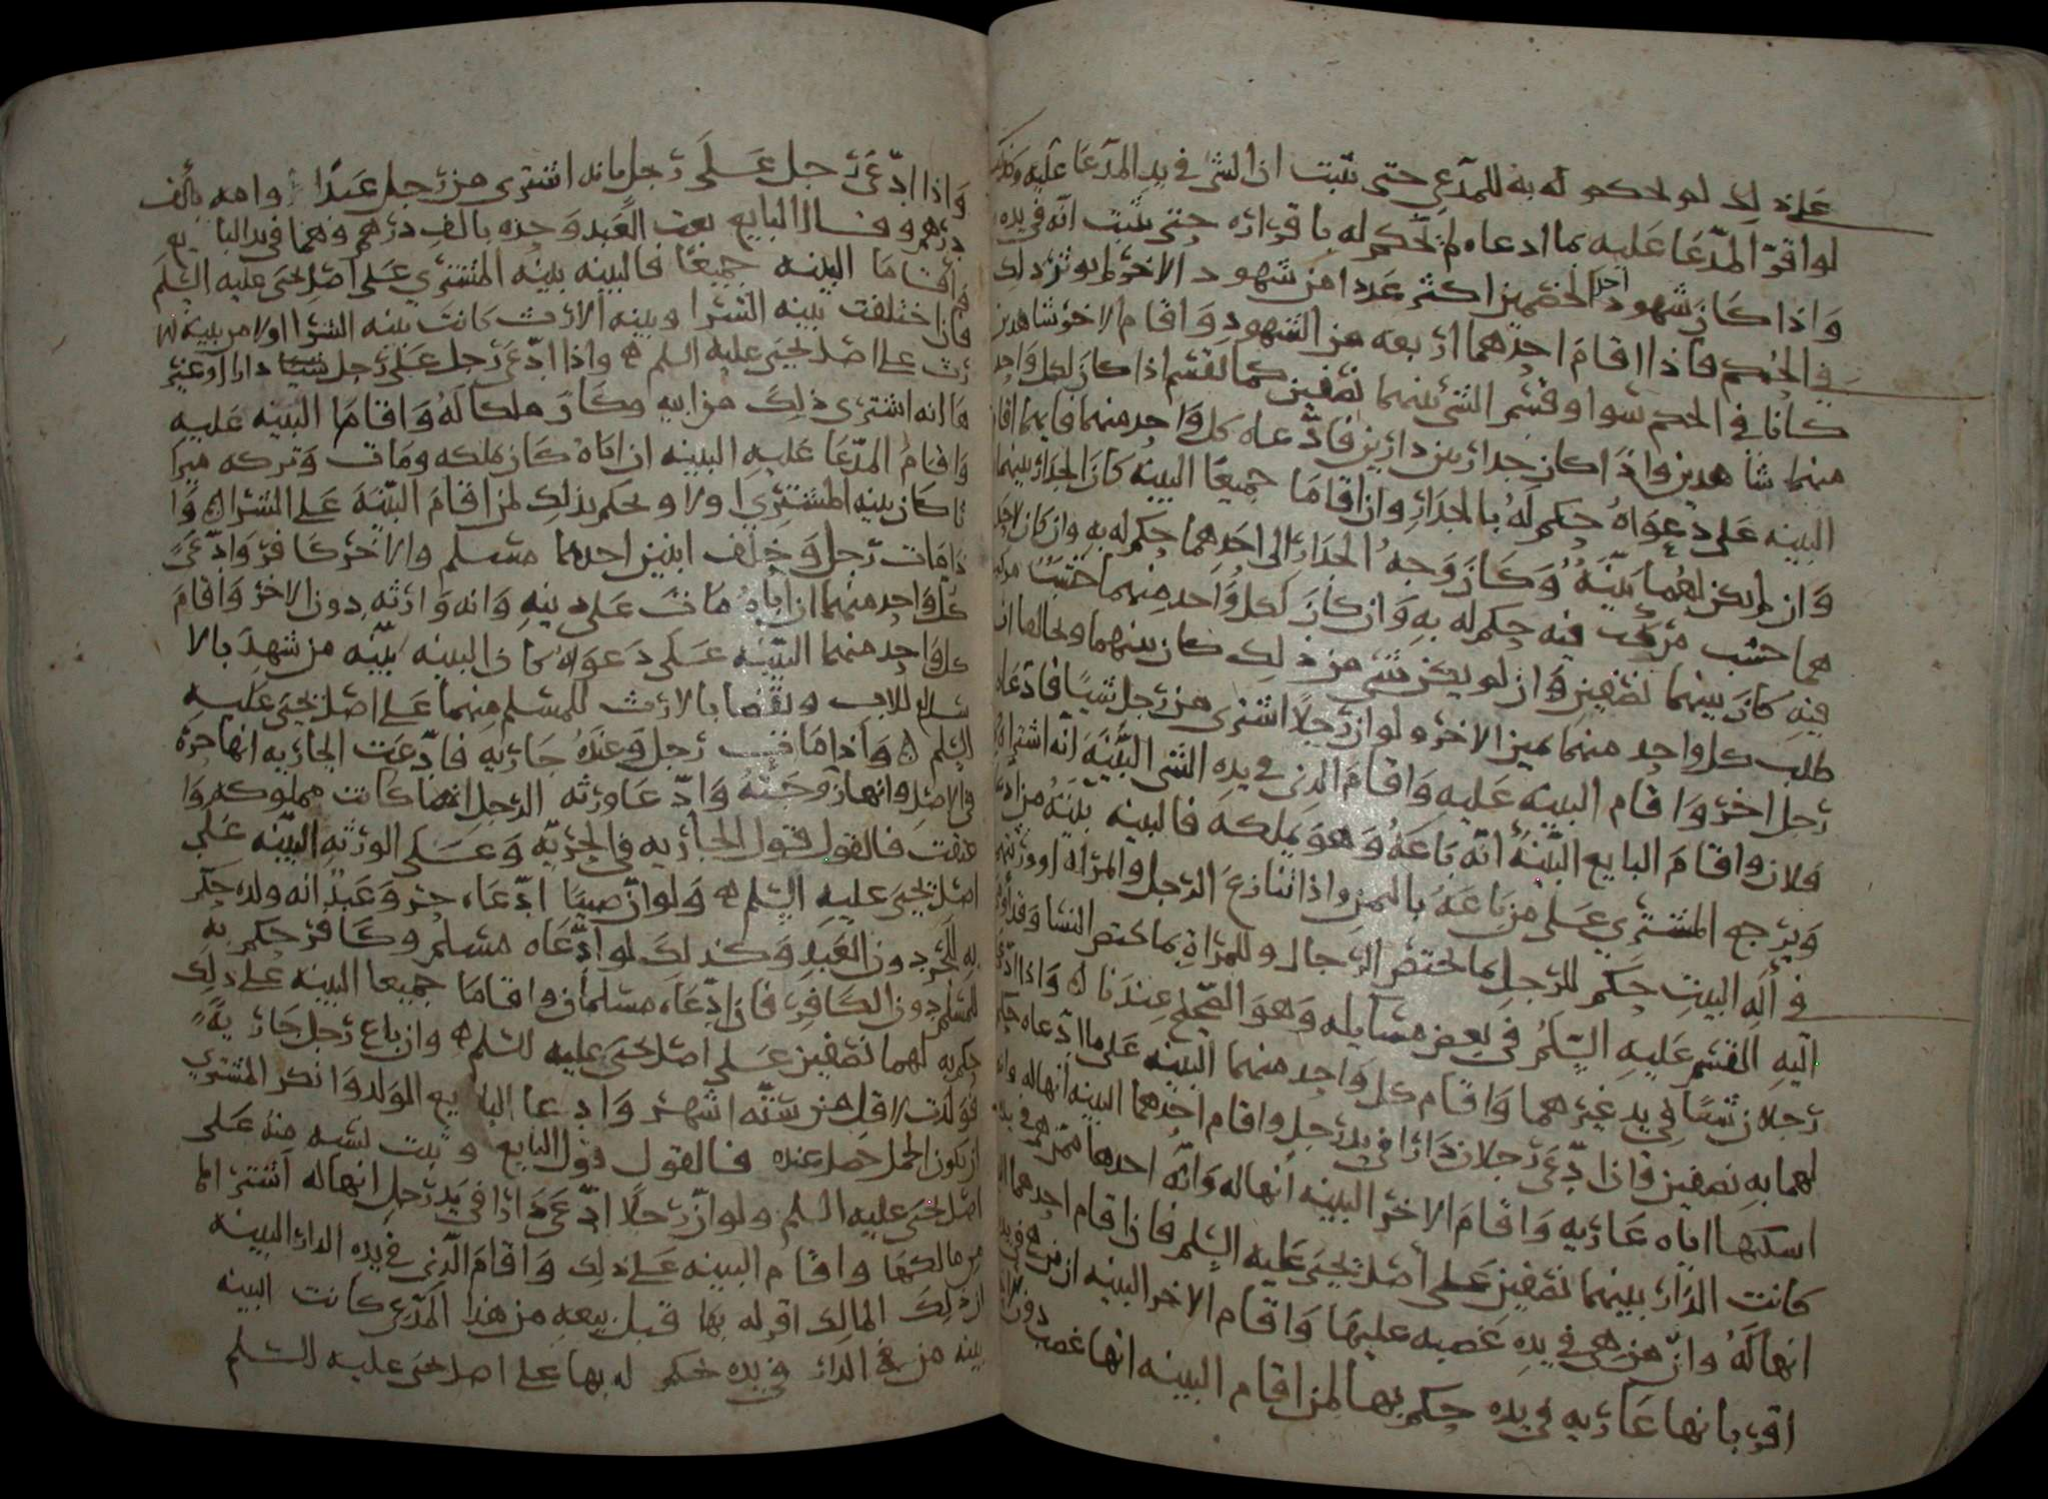 على ذلك لم يحكم له به للمدعي حتى يثبت ان الشي في يد المدعا عليه وكذلك
لو اقر المدعا عليه بما ادعاه لم يحكم له باقراره حتى يثبت انه في يده
واذا كان شهود احد الخصمين اكثر عددا من شهود الاخر لم يوثر ذلك
في الحكم فاذا اقام احدهما اربعه من الشهود واقام الاخر شاهدين
كانا في الحكم سوا وقسم الشي بينهما نصفين كما يقسم اذا كان لكل واحد
منهما شاهدين واذا كان جدار بين دارين فادعاه كل واحد منهما فايهما اقام
البينه على دعواه حكم له بالجدار وان اقاما جميعا البينه كان الجدار بينهما
وان لم يكن لهما بينة وكان وجه الجدار الى احدهما حكم له به وان كان لاحد
هما خشب مركب فيه حكم له به وان كان لكل واحد منهما خشب مركب
فيه كان بينهما نصفين وان لم يكن شي من ذلك كان بينهما وتحالفا ان
طلب كل واحد منهما يمين الاخر ولو ان رجلا اشترى من رجل شيا فادعاه
رجل اخر واقام البينه عليه واقام الذي في يده الشي البينة انه اشتراه من
فلان واقام البايع البينة انه باعه وهو يملكه فالبينه بينة من ادعا
ويرجع المشتري على من باعه بالثمن واذا تنازع الرجل والمراه او ورثتهما
في اله البيت حكم للرجل بما يختص الرجال وللمراة بما يختص النسا وقد اومى
اليه القسم عليه السلم في بعض مسايله وهو الصحيح عندنا ه واذا ادعى
رجلان شيا في يد غيرهما واقام كل واحد منهما البينه على ما ادعاه حكم
لهما به نصفين فان ادعى رجلان دارا في يد رجل واقام احدهما البينه انها له وانه
اسكنها اياه عاريه واقام الاخر البينه انها له وانه احدها ممن هي في يده
كانت الدار بينهما نصفين على اصل يحيى عليه السلم فان اقام احدهما البينه
انها له وان من هي في يده غصبه عليها واقام الاخر البينه ان من هي في يده
اقر بانها عاريه في يده حكم بها لمن اقام البينه انها غصب دون الاخر
واذا ادعى رجل على رجل بانه اشترى من رجل عبدا وامه بالف
درهم وقال البايع بعت العبد وحده بالف درهم وهما في يد البايع
ثم اقاما البينه جميعا فالبينه بينه المشتري على اصل يحيى عليه السلم
فان اختلفت بينه الشرا وبينه الارث كانت بينه الشرا اولا من بينه الا
رث على اصل يحيى عليه السلم ه واذا ادعى رجل على رجل شيا دارا او غيره
وانه اشترى ذلك من ابيه وكان ملكا له واقاما البينه عليه
واقام المدعا عليه البينه ان اباه كان يملكه ومات وتركه ميرا
ثا كان بينه المشتري اولا ويحكم بذلك لمن اقام البينة على الشرا ه وا
ذا مات رجل وخلف ابنين احدهما مسلم والاخر كافر وادعى
كل واحد منهما ان اباه مات على دينه وانه وارثه دون الاخر واقام
كل واحد منهما البينه على دعواه كان البينه بينه من شهد بالا
سلام للاب ويقضا بالارث للمسلم منهما على اصل يحيى عليه
السلم ه واذا مات رجل وعنده جاريه فادعت الجاريه انها حرة
في الاصل وانها زوجته وادعا ورثه الرجل انها كانت مملوكه وا
عتقت فالقول قول الجاريه في الحريه وعلى الورثه البينه على
اصل يحيى عليه السلم ه ولو ان صبيا ادعاه حر وعبد انه ولده حكم
به للحر دون العبد وكذلك لو ادعاه مسلم وكافر حكم به
للمسلم دون الكافر فان ادعاه مسلمان واقاما جميعا البينه على ذلك
حكم به لهما نصفين على اصل يحيى عليه السلم ه وان باع رجل جارية
فولدت لاقل من سته اشهر وادعا البايع الولد وانكر المشتري
ان يكون الحمل حصل عنده فالقول قول البايع وثبت نسبه منه على
اصل يحيى عليه السلم ولو ان رجلا ادعى دارا في يد رجل انها له اشتراها
من مالكها واقام البينه على ذلك واقام الذي في يده الدار البينه
ان ذلك المالك اقر له بها قبل بيعه من هذا المدعي كانت البينه
بينه من هي الدار في يده حكم له بها على اصل يحيى عليه السلم